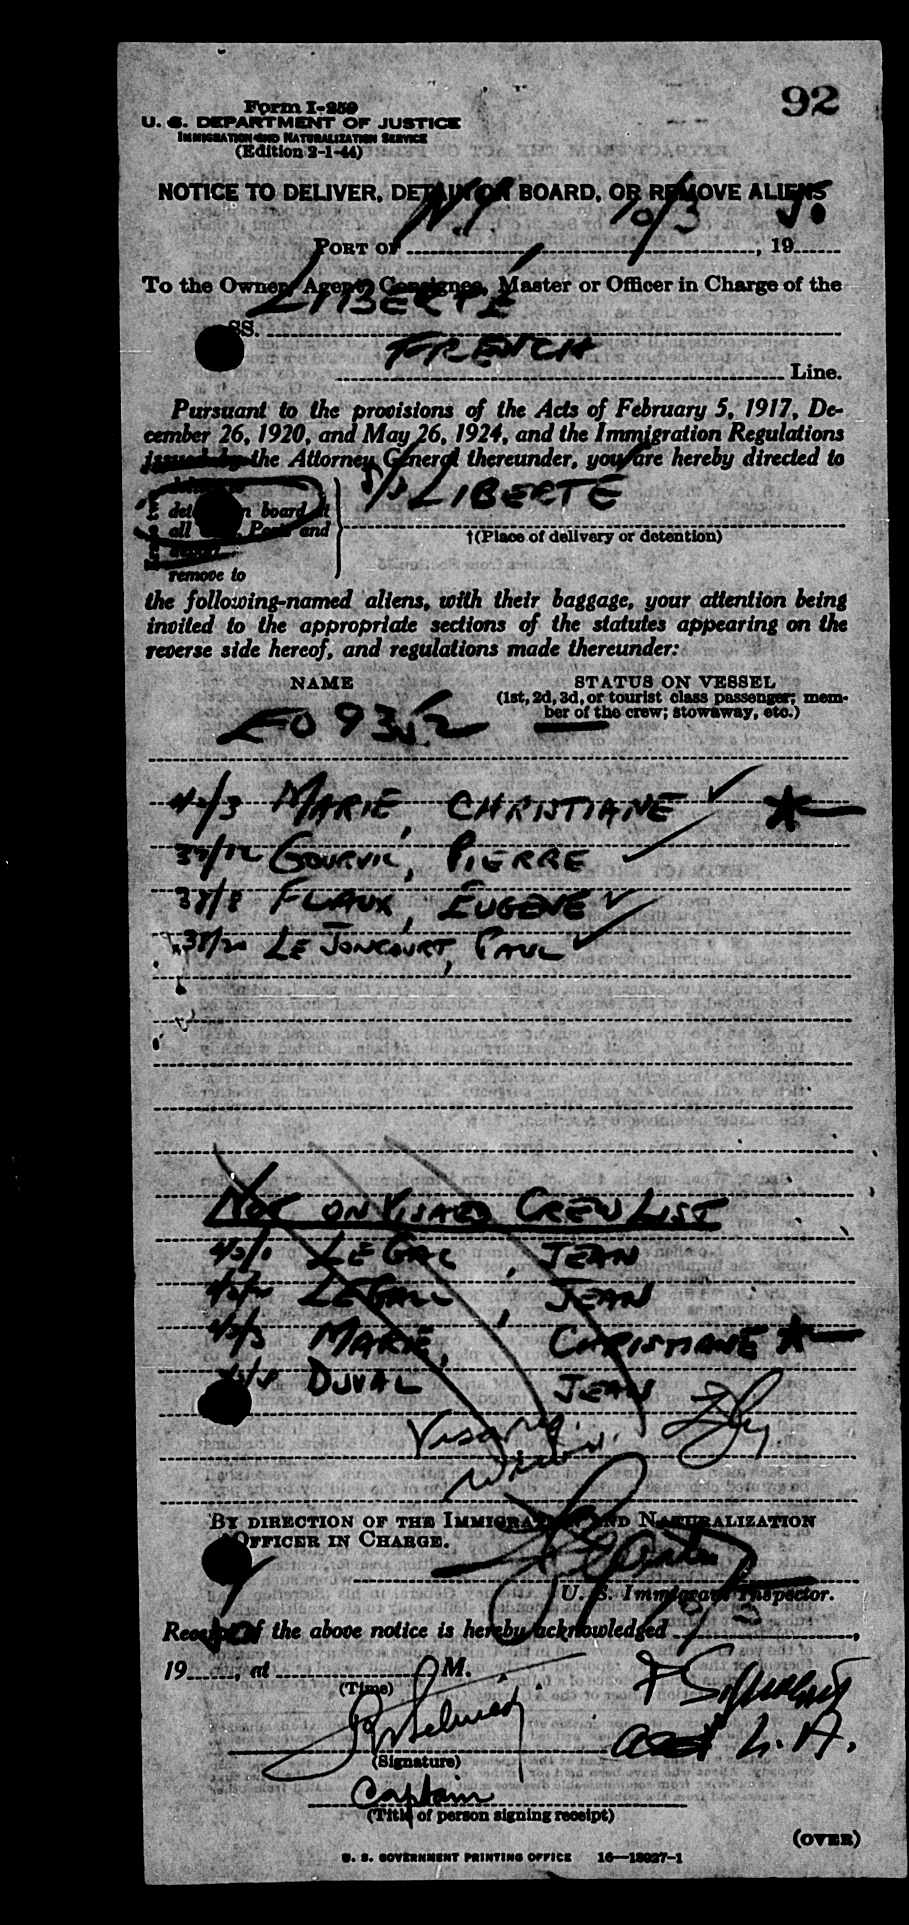 92
Form I-259
U. S. DEPARTMENT OF JUSTICE
IMMIGRATION AND NATURALIZATION SERVICE
(Edition 2-1-44)
NOTICE TO DELIVER, DETAIN ON BOARD, OR REMOVE ALIENS
PORT OF N.Y. 10/3, 19 50
To the Owner, Agent, Consignee, Master or Officer in Charge of the
SS. LIBERTÉ
FRENCH Line.
Pursuant to the provisions of the Acts of February 5, 1917, De-
cember 26, 1920, and May 26, 1924, and the Immigration Regulations
issued by the Attorney General thereunder, you are hereby directed to
detain on board at
all Ports and
remove to
S/S LIBERTÉ
†(Place of delivery or detention)
the following-named aliens, with their baggage, your attention being
invited to the appropriate sections of the statutes appearing on the
reverse side hereof, and regulations made thereunder:
NAME STATUS ON VESSEL
(1st, 2d, 3d, or tourist class passenger; mem-
ber of the crew; stowaway, etc.)
EO 9352
42/3 MARIE, CHRISTIANE ✓ *
37/12 GOURVIL, PIERRE ✓
38/8 FLAUX, EUGENE ✓
38/20 LE JONCOURT, PAUL ✓
NOT ON VISAED CREW LIST
LE GAC, JEAN
LE GALL, JEAN
42/3 MARIE, CHRISTIANE *
DUVAL JEAN
BY DIRECTION OF THE IMMIGRATION AND NATURALIZATION
OFFICER IN CHARGE.
U. S. Immigrant Inspector.
Receipt of the above notice is hereby acknowledged
19 , at M.
(Time)
(Signature)
Captain
(Title of person signing receipt)
(OVER)
U. S. GOVERNMENT PRINTING OFFICE 16—13927-1